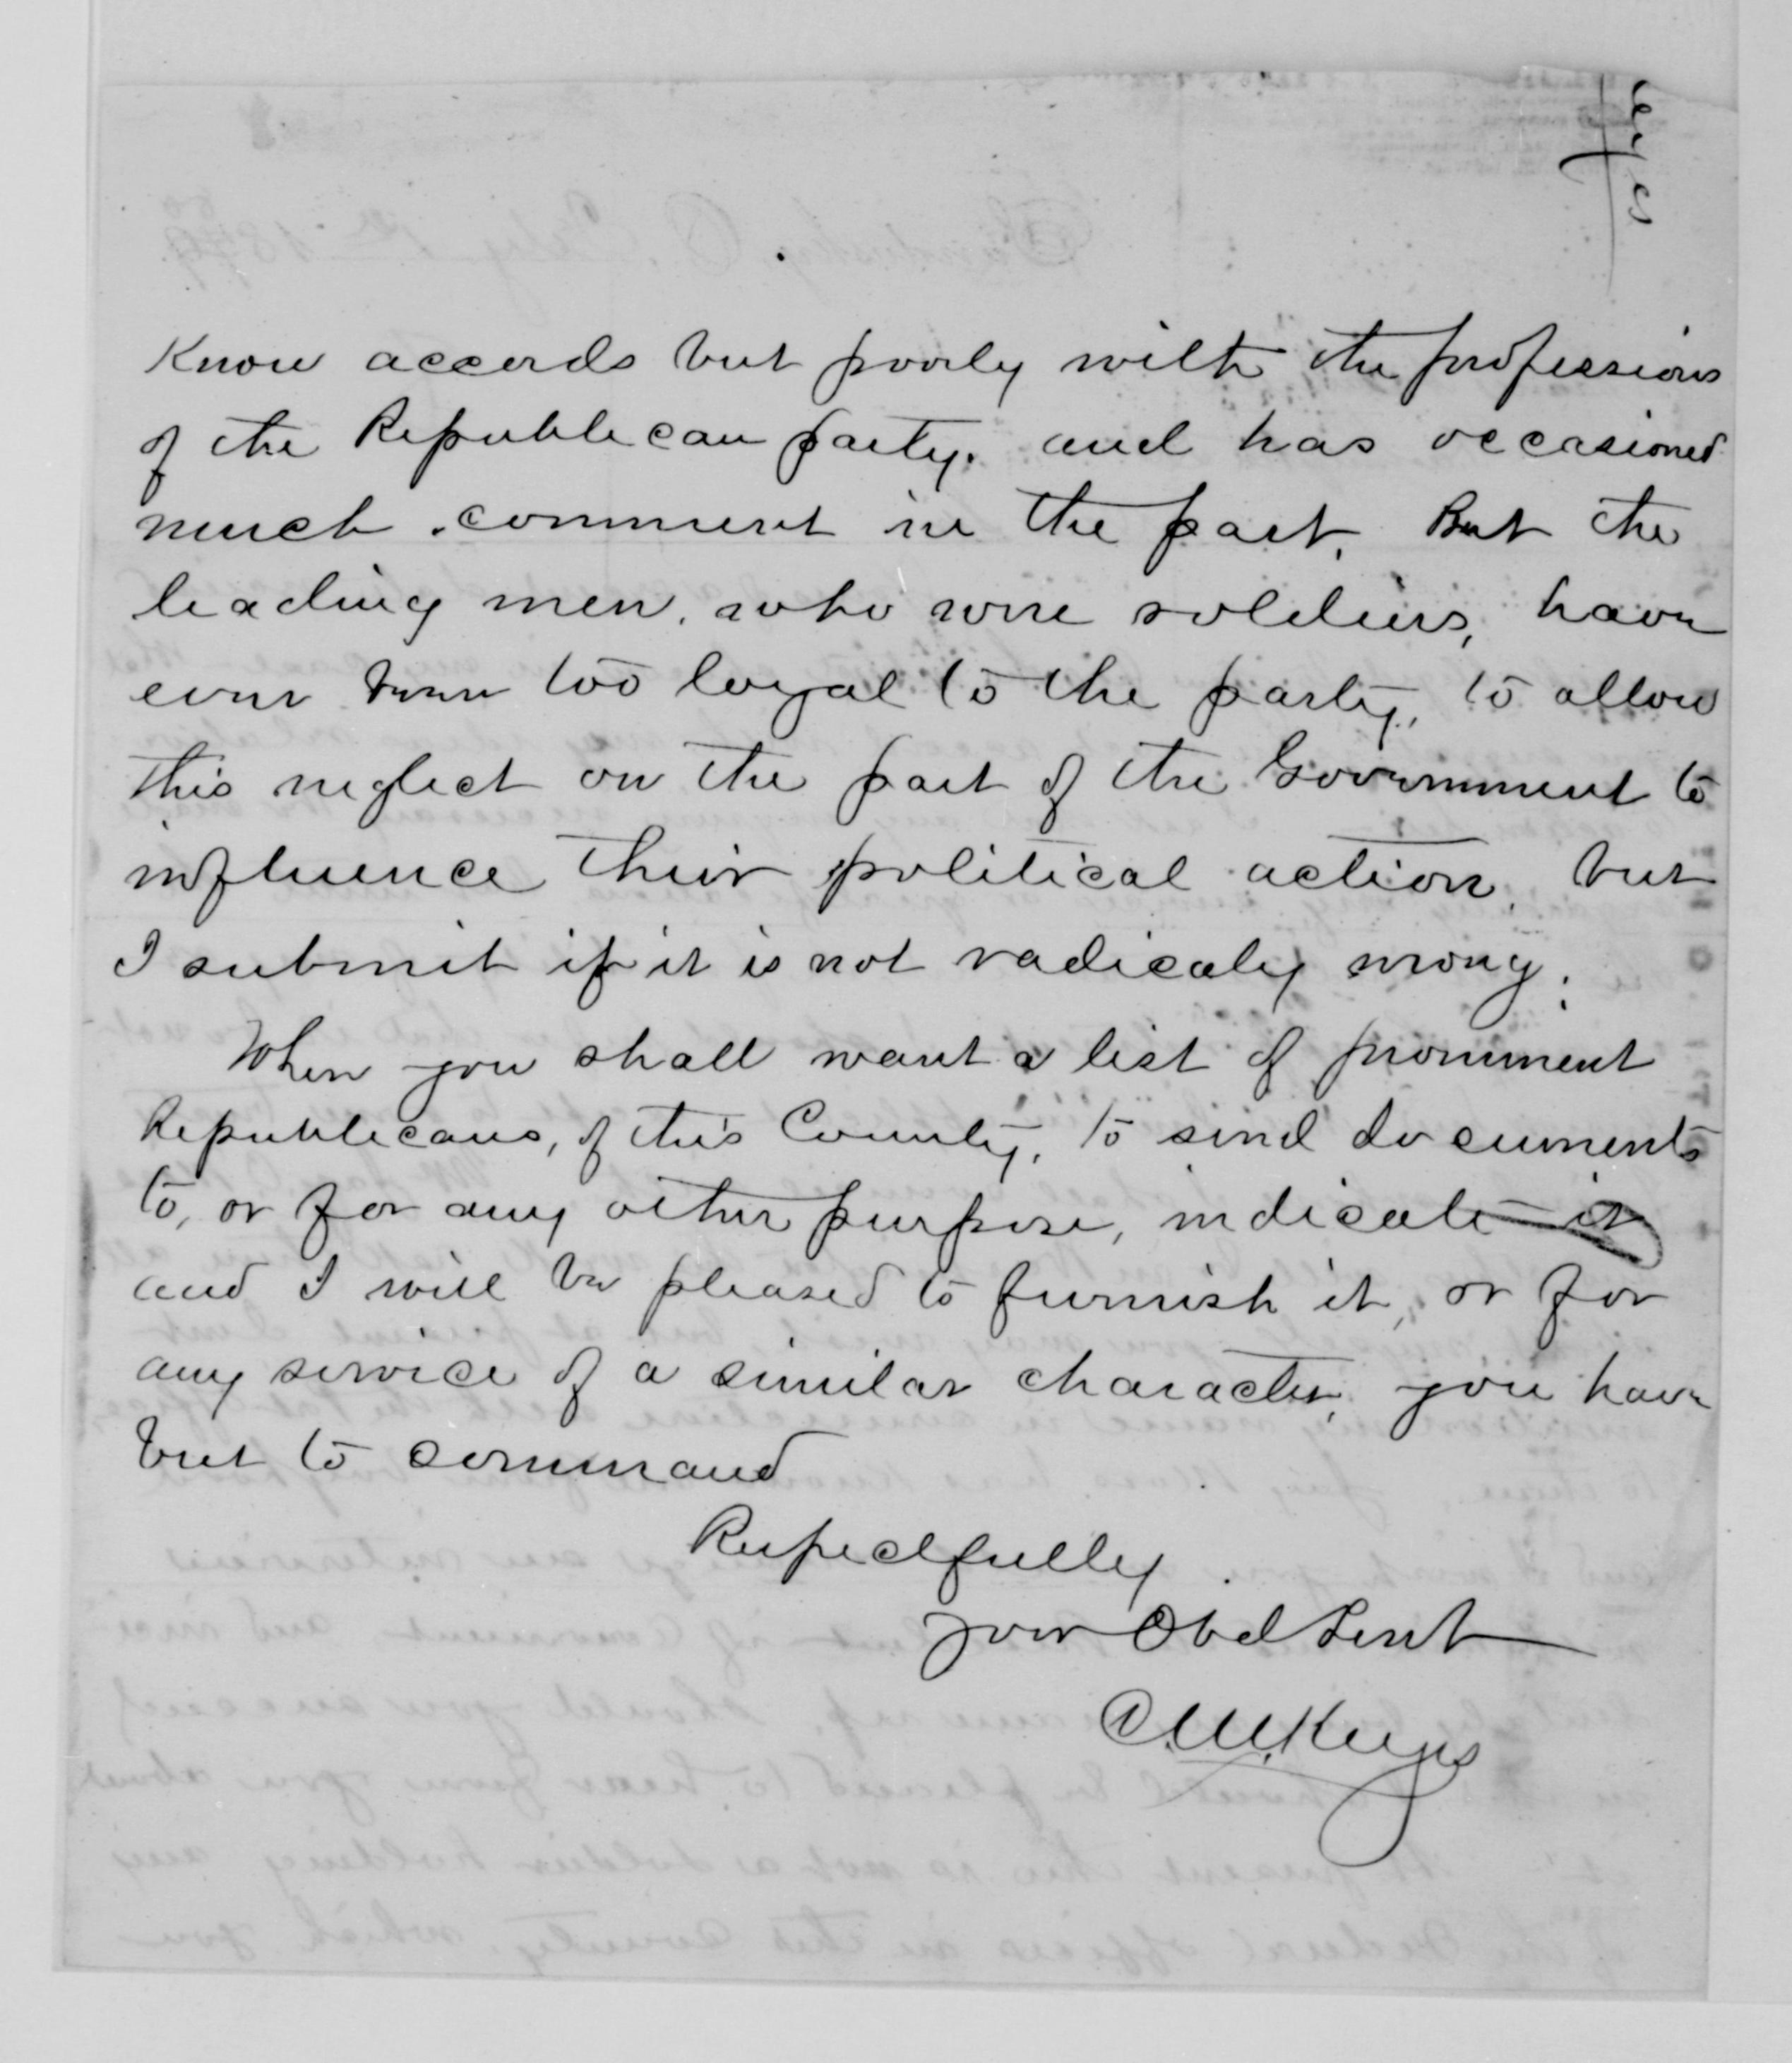 Know accords but poorly with the professions
of the Republican party. and has occasioned
much comment in the past. But the
leading men, who were soldiers, have
ever been too loyal to the party, to allow
this neglect on the part of the Government to
influence their political action, but
I submit if it is not radicaly wrong.
When you shall want a list of prominent
Republicans, of this County, to send documents
to, or for any other purpose, indicate it
and I will be pleased to furnish it, or for
any service of a similar character, you have
but to command
Respectfully
your Obd Servt
C.M. Keyes